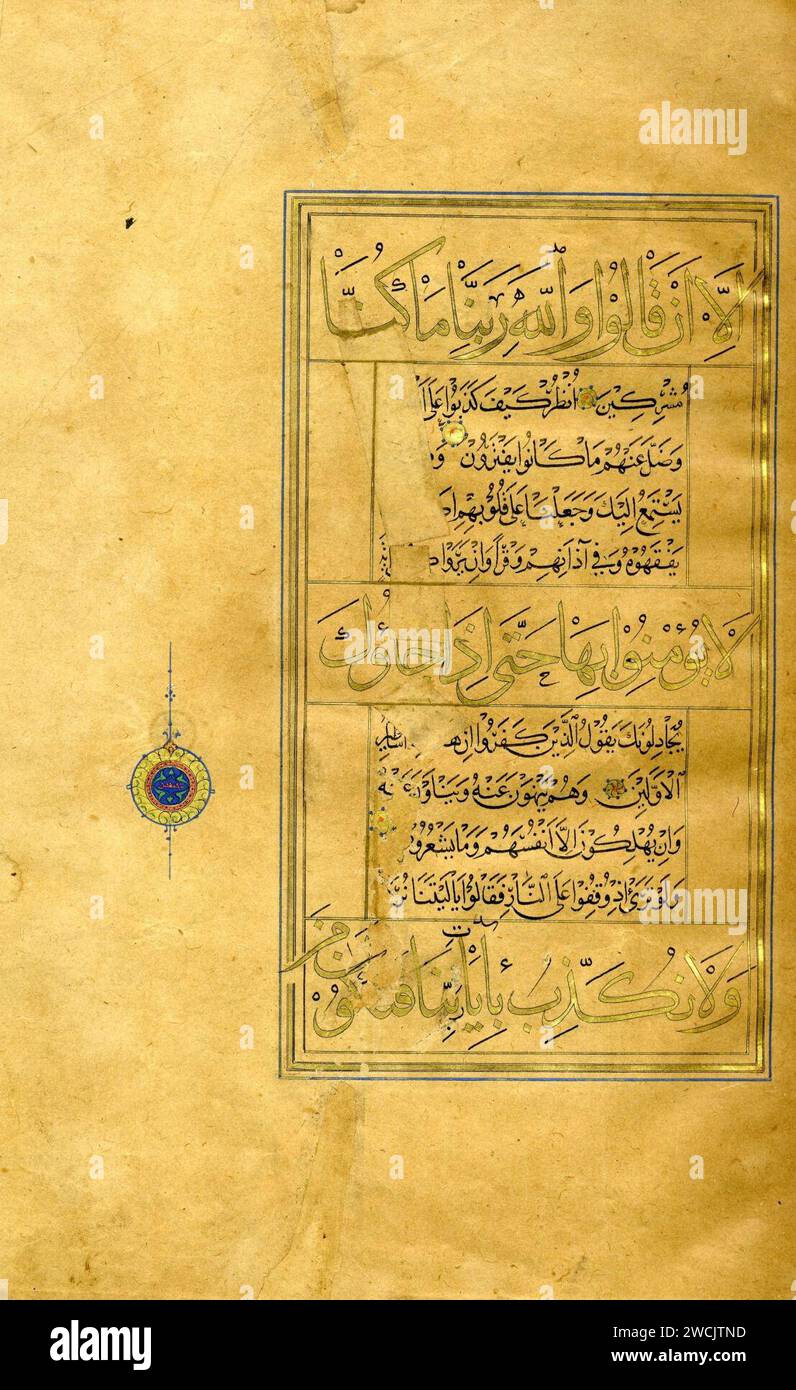 الَّا اَنْ قَالُوا وَاللّٰهِ رَبِّنَا مَا كُنَّا
مُشْرِكِينَ اُنْظُرْ كَيْفَ كَذَبُوا عَلَى
وَضَلَّ عَنْهُمْ مَا كَانُوا يَفْتَرُونَ
يَسْتَمِعُ اِلَيْكَ وَجَعَلْنَا عَلَى قُلُوبِهِمْ
يَفْقَهُوهُ وَفِي آذَانِهِمْ وَقْرًا وَاِنْ يَرَوْا
لَا يُؤْمِنُوا بِهَا حَتّٰى اِذَا جَاؤُكَ
يُجَادِلُونَكَ يَقُولُ الَّذِينَ كَفَرُوا اِنْ هـ اساطير
الْاَوَّلِينَ وَهُمْ يَنْهَوْنَ عَنْهُ وَيَنْاَوْنَ عَنْهُ
وَاِنْ يُهْلِكُونَ اِلَّا اَنْفُسَهُمْ وَمَا يَشْعُرُونَ
وَلَوْ تَرٰى اِذْ وُقِفُوا عَلَى النَّارِ فَقَالُوا يَا لَيْتَنَا نُرَدُّ
وَلَا نُكَذِّبَ بِاٰيَاتِ رَبِّنَا
alamy
Image ID: 2WCJTND
www.alamy.com